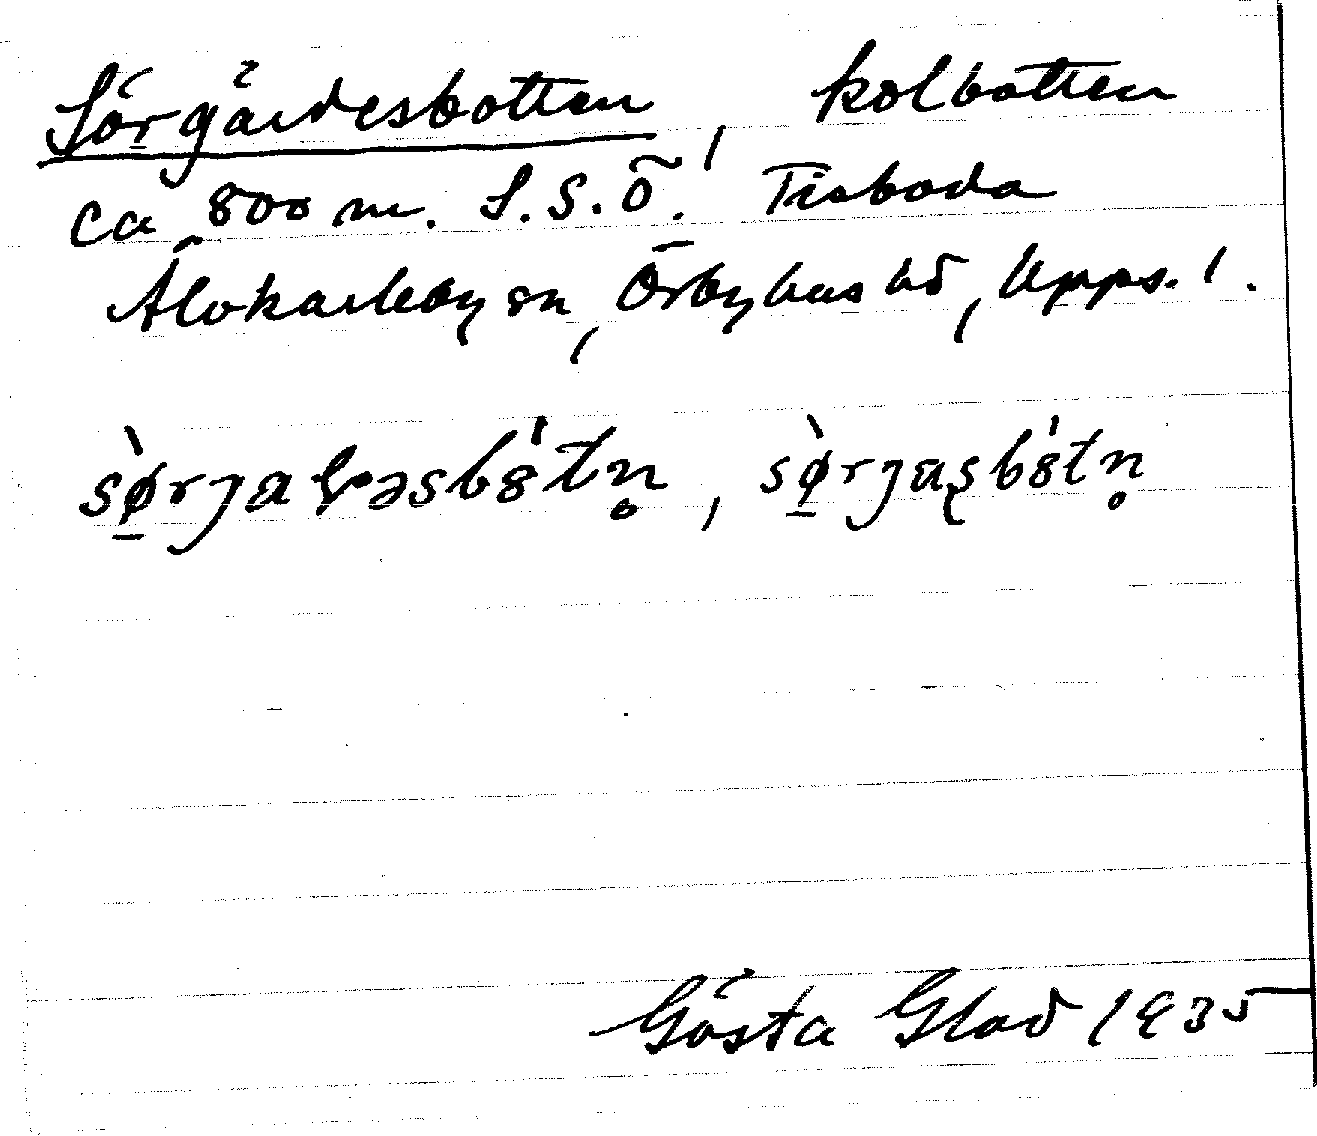 Sörgårdesbotten, kolbotten
ca 800 m. S.S.Ö. Tisboda
Älvkarleby sn, Örbyhus hd, Upps. l.
sø̀rɟaɽəsbɞ́tn̥, sø̀rɟaʂbɞ́tn̥
Gösta Glad 1935